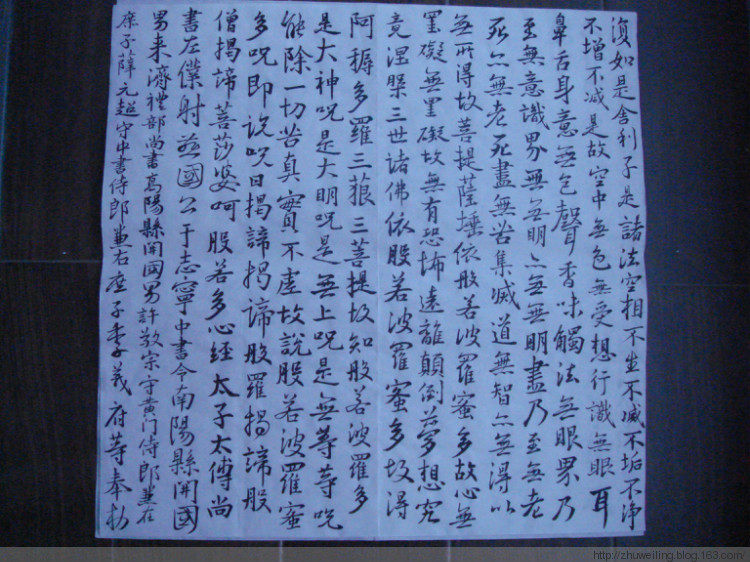 復如是舍利子是諸法空相不生不滅不垢不淨
不增不減是故空中無色無受想行識無眼耳
鼻舌身意無色聲香味觸法無眼界乃
至無意識界無無明亦無無明盡乃至無老
死亦無老死盡無苦集滅道無智亦無得以
無所得故菩提薩埵依般若波羅蜜多故心無
罣礙無罣礙故無有恐怖遠離顛倒夢想究
竟涅槃三世諸佛依般若波羅蜜多故得
阿耨多羅三藐三菩提故知般若波羅多
是大神咒是大明咒是無上咒是無等等咒
能除一切苦真實不虛故說般若波羅蜜
多咒即說咒曰揭諦揭諦般羅揭諦般
僧揭諦菩莎婆呵般若多心經太子太傅尚
書左僕射燕國公于志寧中書令南陽縣開國
男來濟禮部尚書高陽縣開國男許敬宗守黄门侍郎兼左
庶子薛元超守中書侍郎兼右庶子李義府等奉勑
http://zhuweiling.blog.163.com/